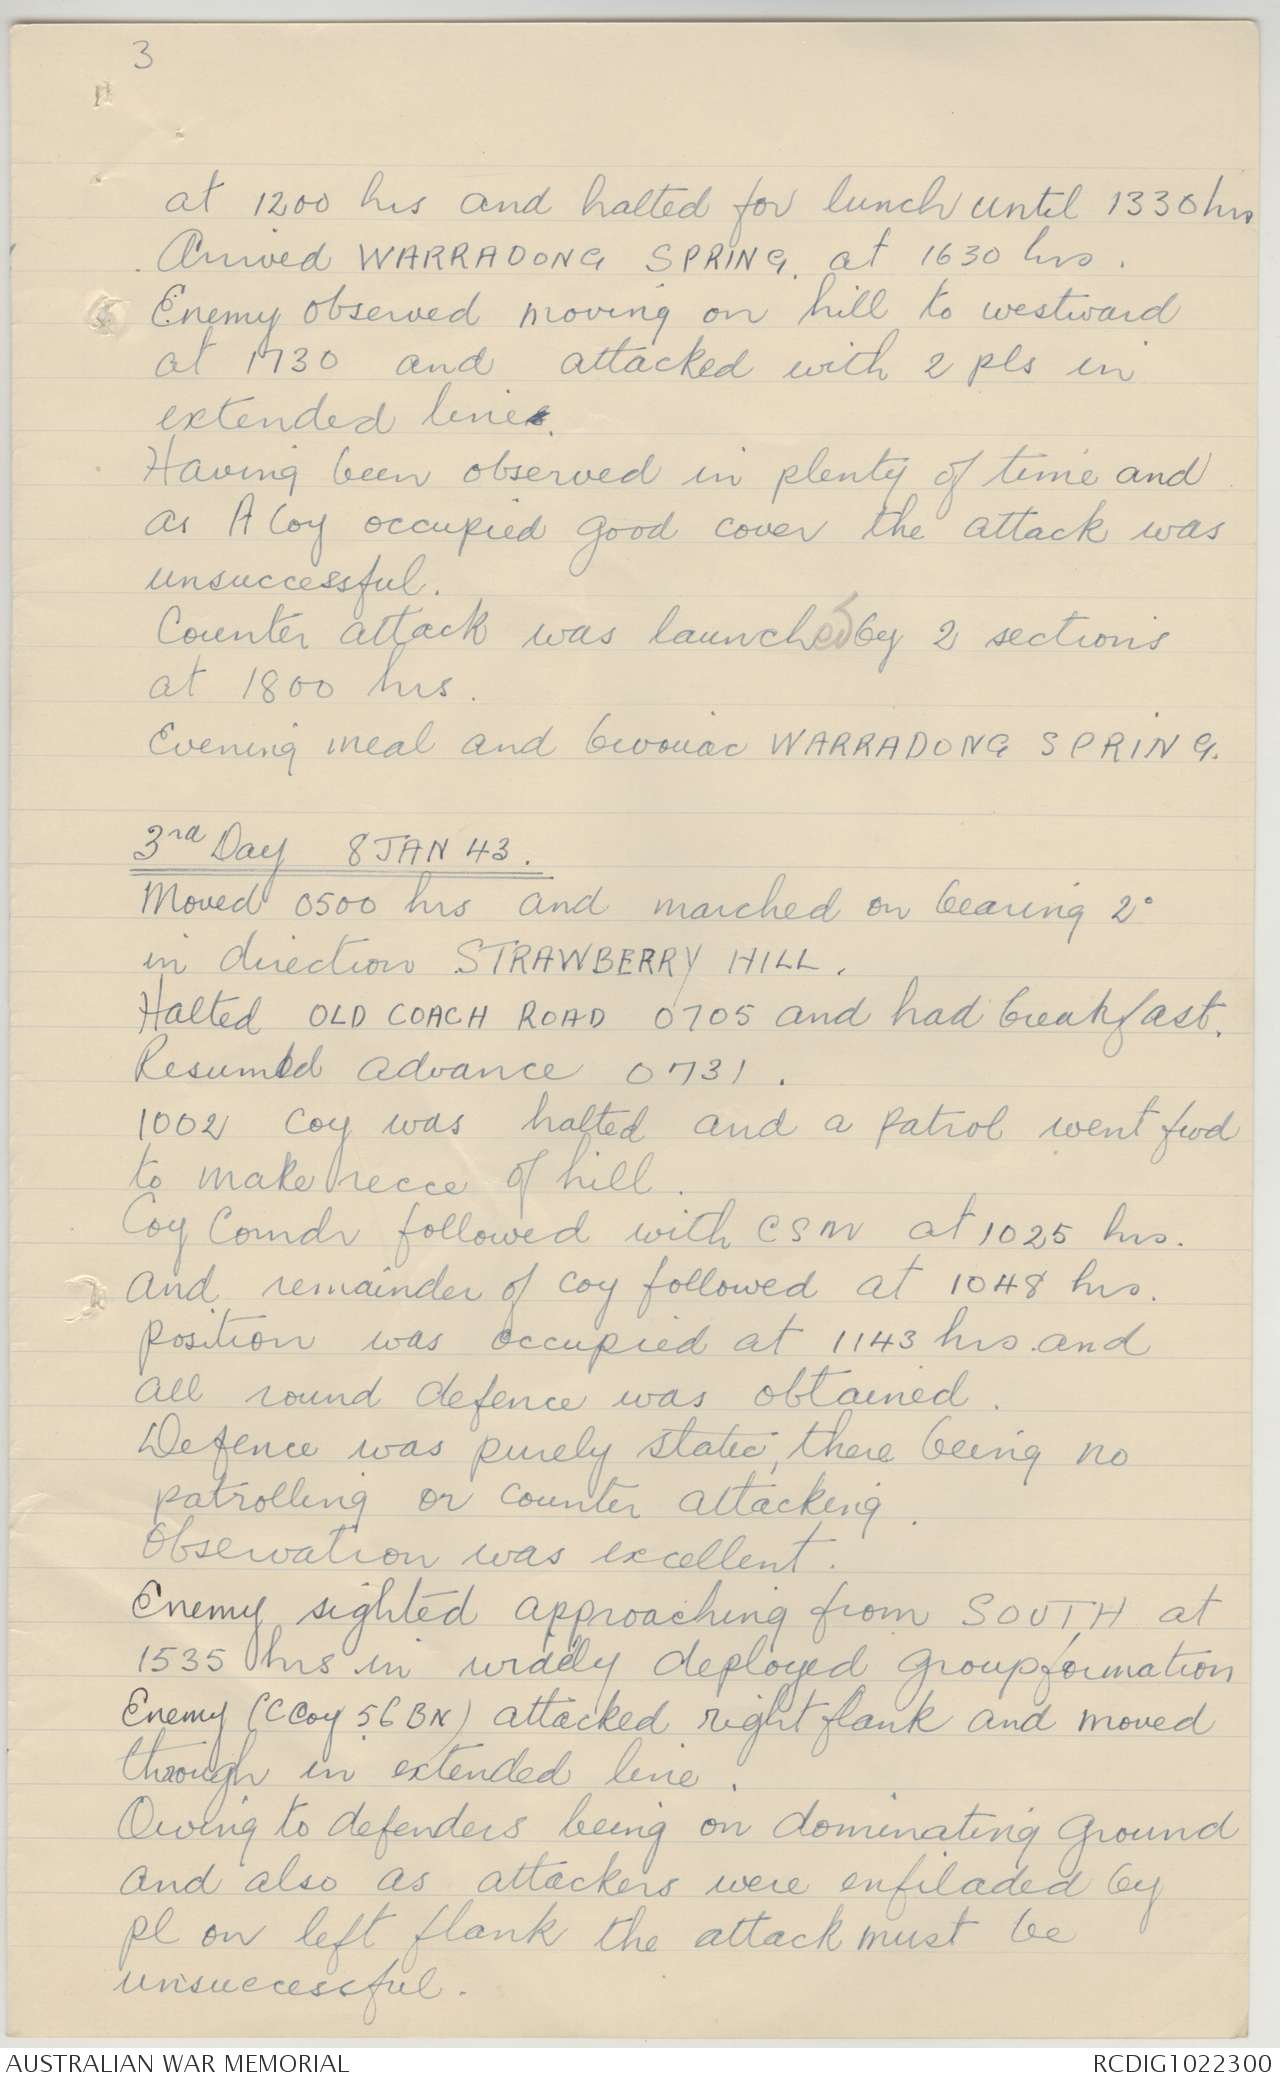 3
at 1200 hrs and halted for lunch until 1330 hrs
Arrived WARRADONG SPRING. at 1630 hrs.
Enemy observed moving on hill to westward
at 1730 and attacked with 2 pls in
extended line.
Having been observed in plenty of time and
as A Coy occupied good cover the attack was
unsuccessful.
Counter attack was launched by 2 sections
at 1800 hrs.
Evening meal and bivouac WARRADONG SPRING.
3rd Day 8 JAN 43.
Moved 0500 hrs and marched on bearing 2°
in direction STRAWBERRY HILL.
Halted OLD COACH ROAD 0705 and had breakfast.
Resumed advance 0731.
1002 Coy was halted and a patrol went fwd
to make recce of hill.
Coy Comdr followed with CSM at 1025 hrs.
and remainder of coy followed at 1048 hrs.
position was occupied at 1143 hrs and
all round defence was obtained.
Defence was purely static, there being no
patrolling or counter attacking.
Observation was excellent.
Enemy sighted approaching from SOUTH at
1535 hrs in widely deployed group formation
Enemy (C Coy 56 BN) attacked right flank and moved
through in extended line.
Owing to defenders being on dominating ground
and also as attackers were enfiladed by
pl on left flank the attack must be
unsuccessful.
AUSTRALIAN WAR MEMORIAL
RCDIG1022300